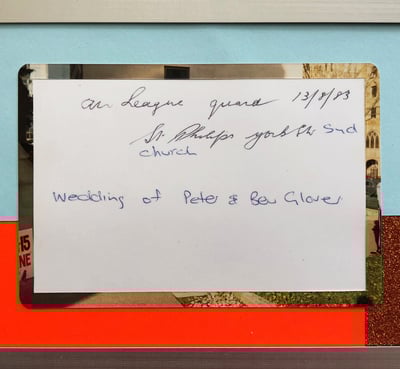 an League guard 13/8/83
St. Philips york St. Syd
church
Wedding of Peter & Bev Glover
15
NE